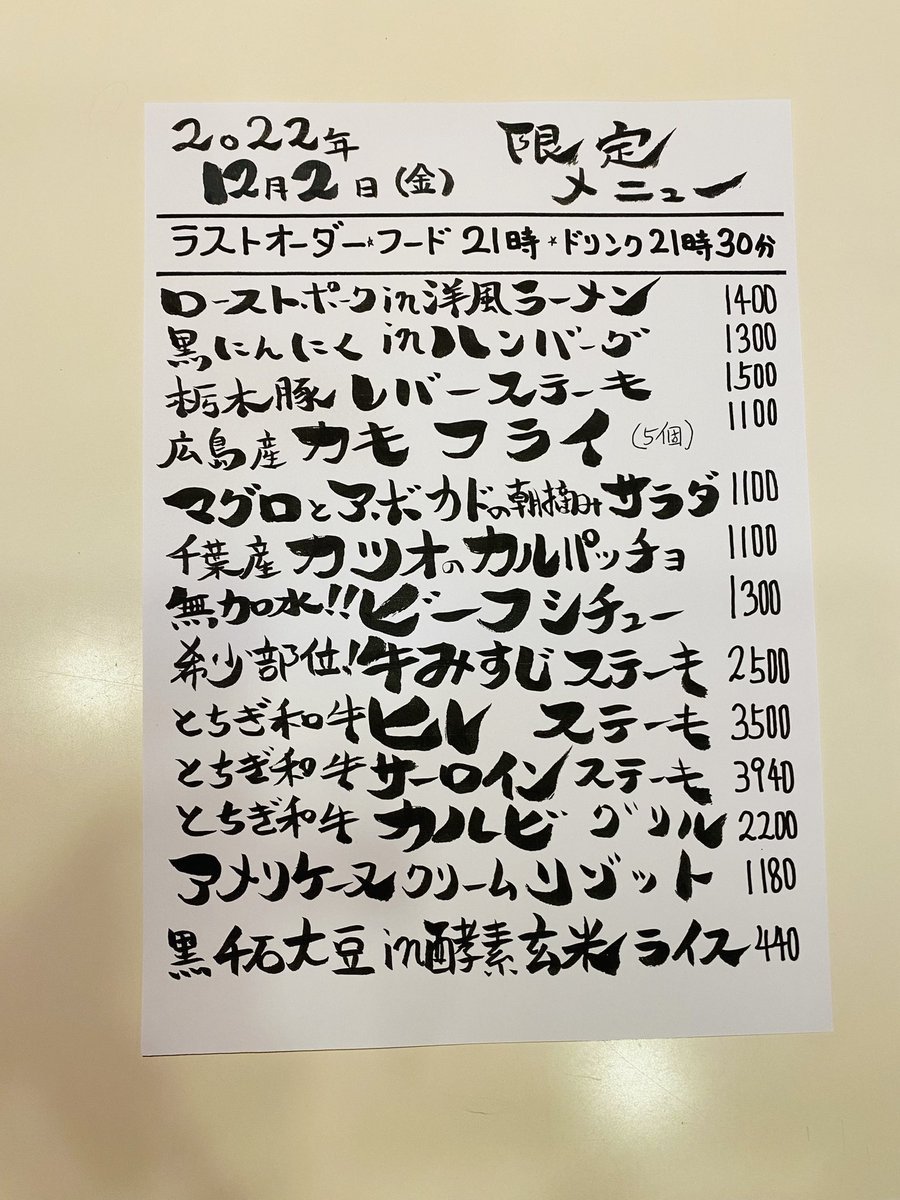 2022年
12月2日(金)
限定
メニュー
ラストオーダー*フード 21時 *ドリンク21時30分
ローストポークin洋風ラーメン 1400
黒にんにく inハンバーグ 1300
栃木豚 レバーステーキ 1500
広島産 カキ フライ (5個) 1100
マグロとアボカドの朝摘みサラダ 1100
千葉産 カツオのカルパッチョ 1100
無加水!!ビーフシチュー 1300
希少部位!牛みすじステーキ 2500
とちぎ和牛ヒレ ステーキ 3500
とちぎ和牛サーロインステーキ 3940
とちぎ和牛 カルビ グリル 2200
アメリケーヌクリームリゾット 1180
黒千石大豆in酵素玄米ライス 440